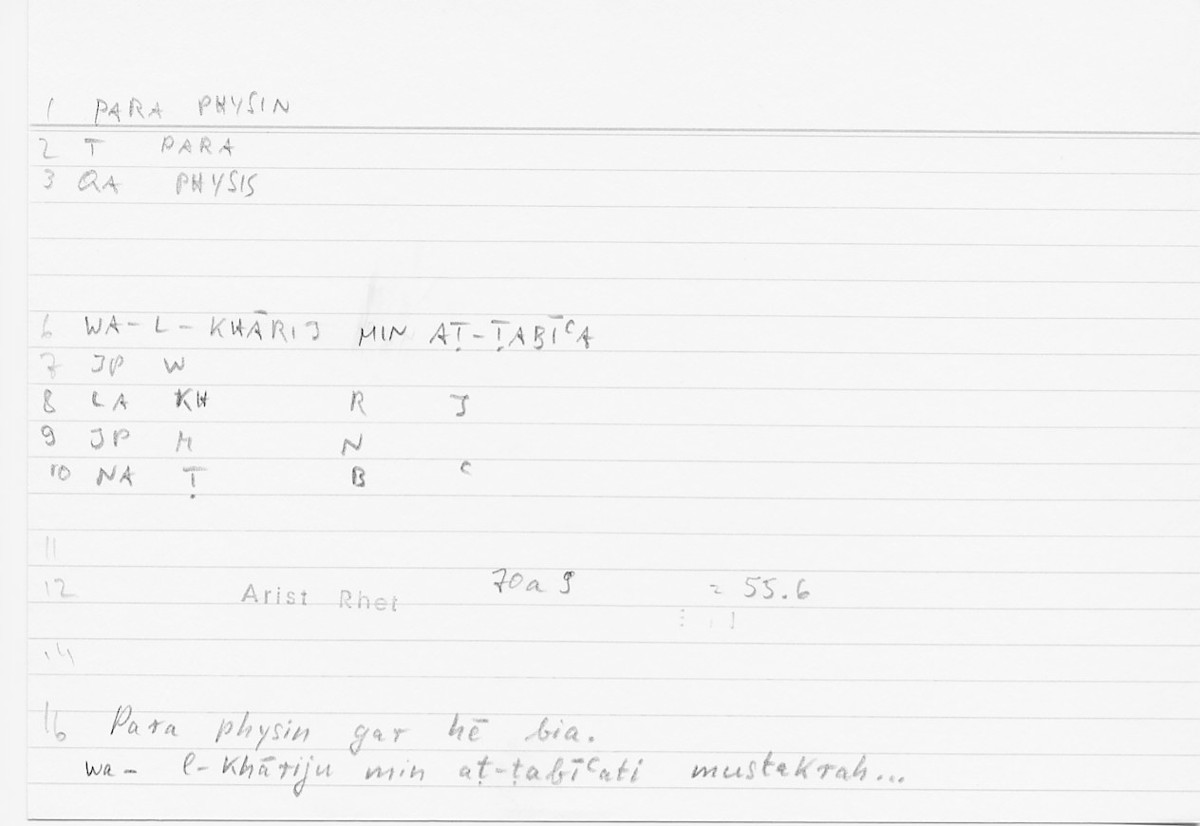 1 PARA PHYSIN
2 T PARA
3 QA PHYSIS
6 WA-L-KHĀRIJ MIN AṬ-ṬABĪʿA
7 JP W
8 LA KH R J
9 JP M N
10 NA Ṭ B ʿ
11
12 Arist Rhet 70a9 = 55.6
14
16 Para physin gar hē bia.
wa-l-Khāriju min aṭ-ṭabīʿati mustakrah...